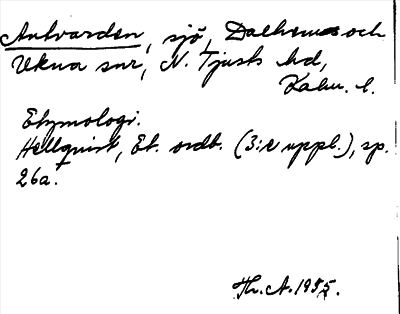 Ankvarden, sjö, Dalhems och
Ukna snr, N. Tjusts hd,
Kalm. l.
Etymologi.
Hellquist, Et. ordb. (3:e uppl.), sp.
26a.
Th. A. 1955.